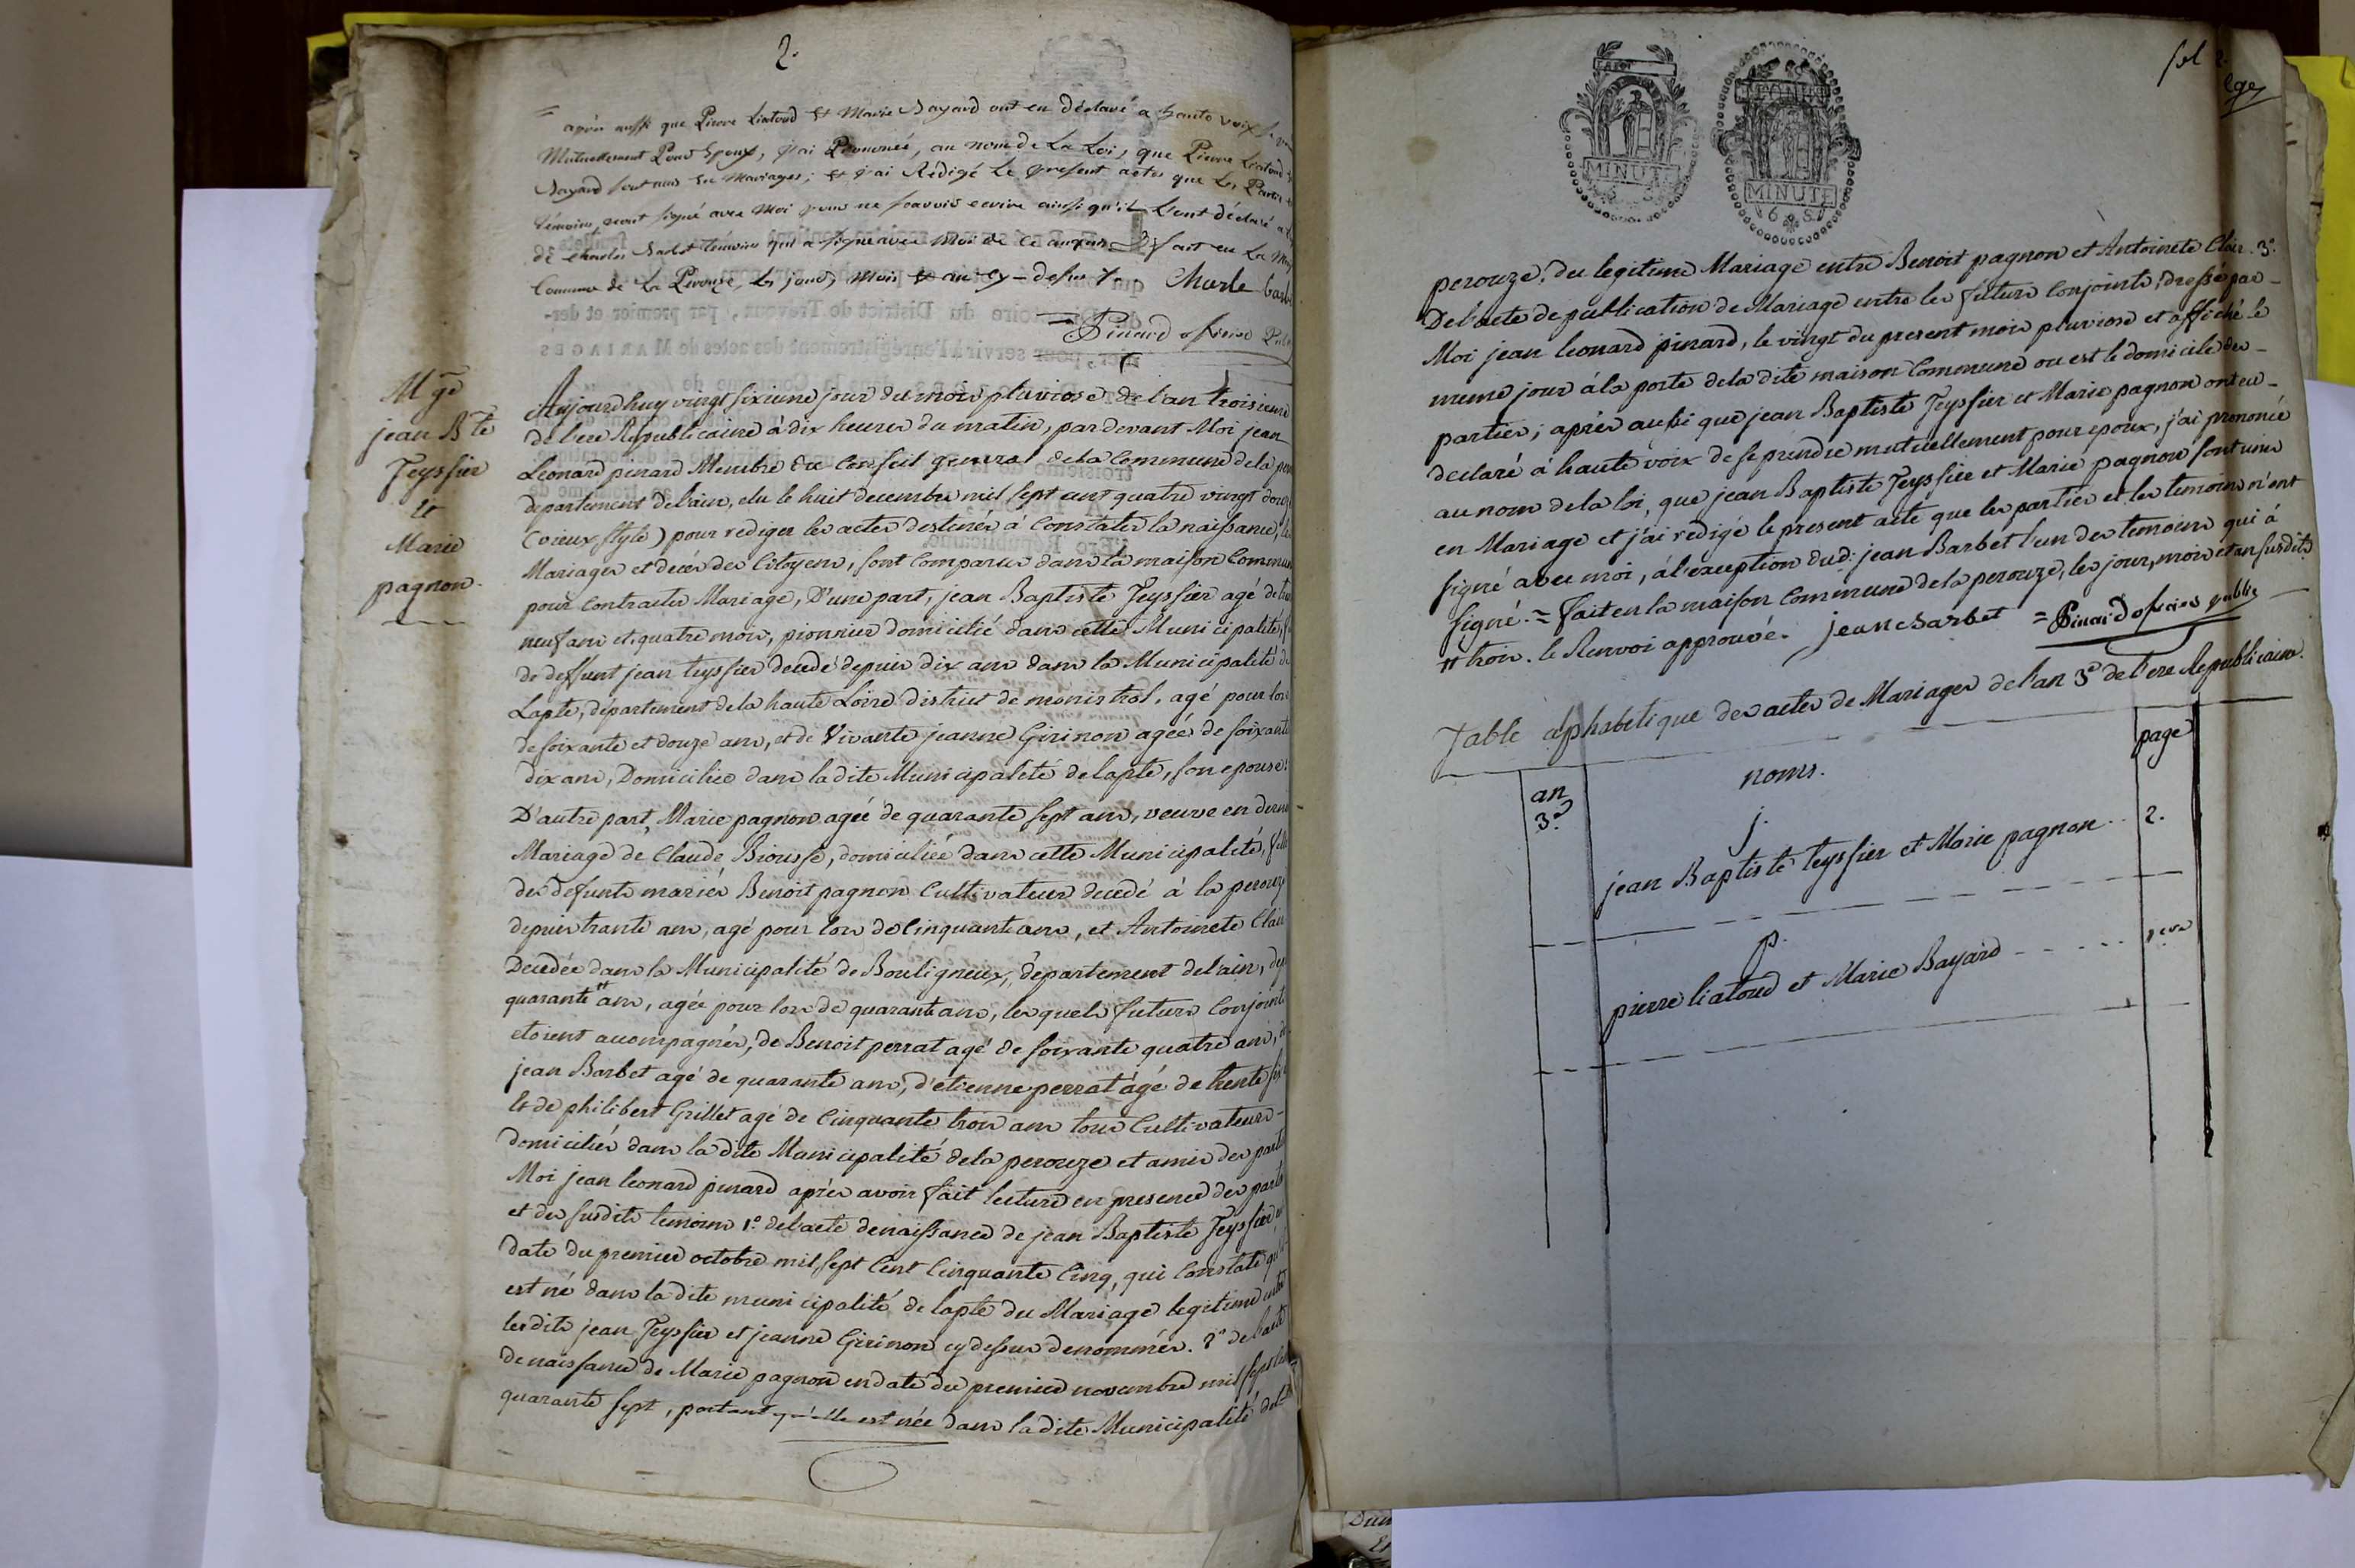 2.
= après aussi que Pierre Liatoud et Marie Bayard ont eu déclaré a haute voix se
Mutuellement Pour Epoux, j'ai Prononcé, au nom de La Loi, que Pierre Liatoud
Bayard sont unis en Mariages; et j'ai Rédigé Le present actes que Les Parties
témoins n'ont signé avec Moi pour ne sçavoir ecrire ainsi qu'il L'ont déclaré
de Charles Barbet temoin qui a signé avec Moi de ce enquis fait en La
Commune de La Perouze, Les jours, Mois & an cy-dessus Charle barbet
= Pinard oficier
Mge
jean Bte
Teyssier
et
Marie
pagnon.
Aujourdhuy vingt sixieme jour du mois pluviose de l'an troisieme
de l'ere Republicaine à dix heures du matin, par devant Moi jean
Leonard pinard Membre du Conseil general de la Commune de la
departement de l'ain, elu le huit decembre mil sept cent quatre vingt douze
(vieux style) pour rediger les actes destinés à Constater la naissance, les
Mariages et decés des Citoyens, sont Comparus dans la maison Commune
pour Contracter Mariage, D'une part, jean Baptiste Teyssier agé de
neuf ans et quatre mois, pionnier domicilié dans cette Municipalité,
de deffunt jean teyssier decedé depuis dix ans dans la Municipalité de
Lapte, département de la haute Loire district de monistrol, agé pour lors
de soixante et douze ans, et de Vivante jeanne Girinon agée de soixante
dix ans, Domiciliée dans la dite Municipalité de lapte, son epouse:
D'autre part, Marie pagnon agée de quarante sept ans, veuve en dernier
Mariage de Claude Biousse, domiciliée dans cette Municipalité, fille
des defunts mariés Benoit pagnon Cultivateur decedé à la perouze
depuis trante ans, agé pour lors de Cinquante ans, et Antoinete Clair
Decedée dans la Municipalité de Bouligneux, département de l'ain,
quarante # ans, agée pour lors de quarante ans, les quels futurs Conjoints
etoient accompagnés, de Benoit perrat agé de soixante quatre ans,
jean Barbet agé de quarante ans, d'etienne perrat agé de trente
et de philibert Grillet agé de Cinquante trois ans tous Cultivateurs-
domiciliés dans la dite Municipalité de la perouze et amis des parties
Moi jean leonard pinard après avoir fait lecture en presence des parties
et des susdits temoins 1.º de l'acte de naissance de jean Baptiste Teyssier
date du premier octobre mil sept Cent Cinquante Cinq, qui Constate
est né dans la dite municipalité de lapte du Mariage legitime entre
lesdits jean Teyssier et jeanne Girinon cy dessus denommés. 2º de l'acte
de naissance de Marie pagnon en date du premier novembre mil sept cent
quarante sept, portant qu'elle est née dans la dite Municipalité de la
fol 2.
MINUTE
MINUTE
perouze, du legitime Mariage entre Benoit pagnon et Antoinete Clair. 3º.
De l'acte de publication de Mariage entre les futurs Conjoints, dressé par-
Moi jean leonard pinard, le vingt du present mois pluviose et affiché le
meme jour à la porte de la dite maison Commune ou est le domicile des-
parties; après aussi que jean Baptiste Teyssier et Marie pagnon ont eu-
declaré à haute voix de se prendre mutuellement pour epoux, j'ai prononcé
au nom de la loi, que jean Baptiste Teyssier et Marie pagnon sont unis
en Mariage et j'ai redigé le present acte que les parties et les temoins n'ont
signé avec moi, à l'exception dud. jean Barbet l'un des temoins qui à
signé. = fait en la maison Commune de la perouze, les jour, mois et an susdits
# trois. le Renvoi approuvé. jean barbet = Pinard oficier public
Table alphabetique des actes de Mariages de l'an 3º de l'ere Republicaine.
an noms. page
3º j.
jean Baptiste teyssier et Marie pagnon .. 2.
p.
pierre liatoud et Marie Bayard - - - - ..